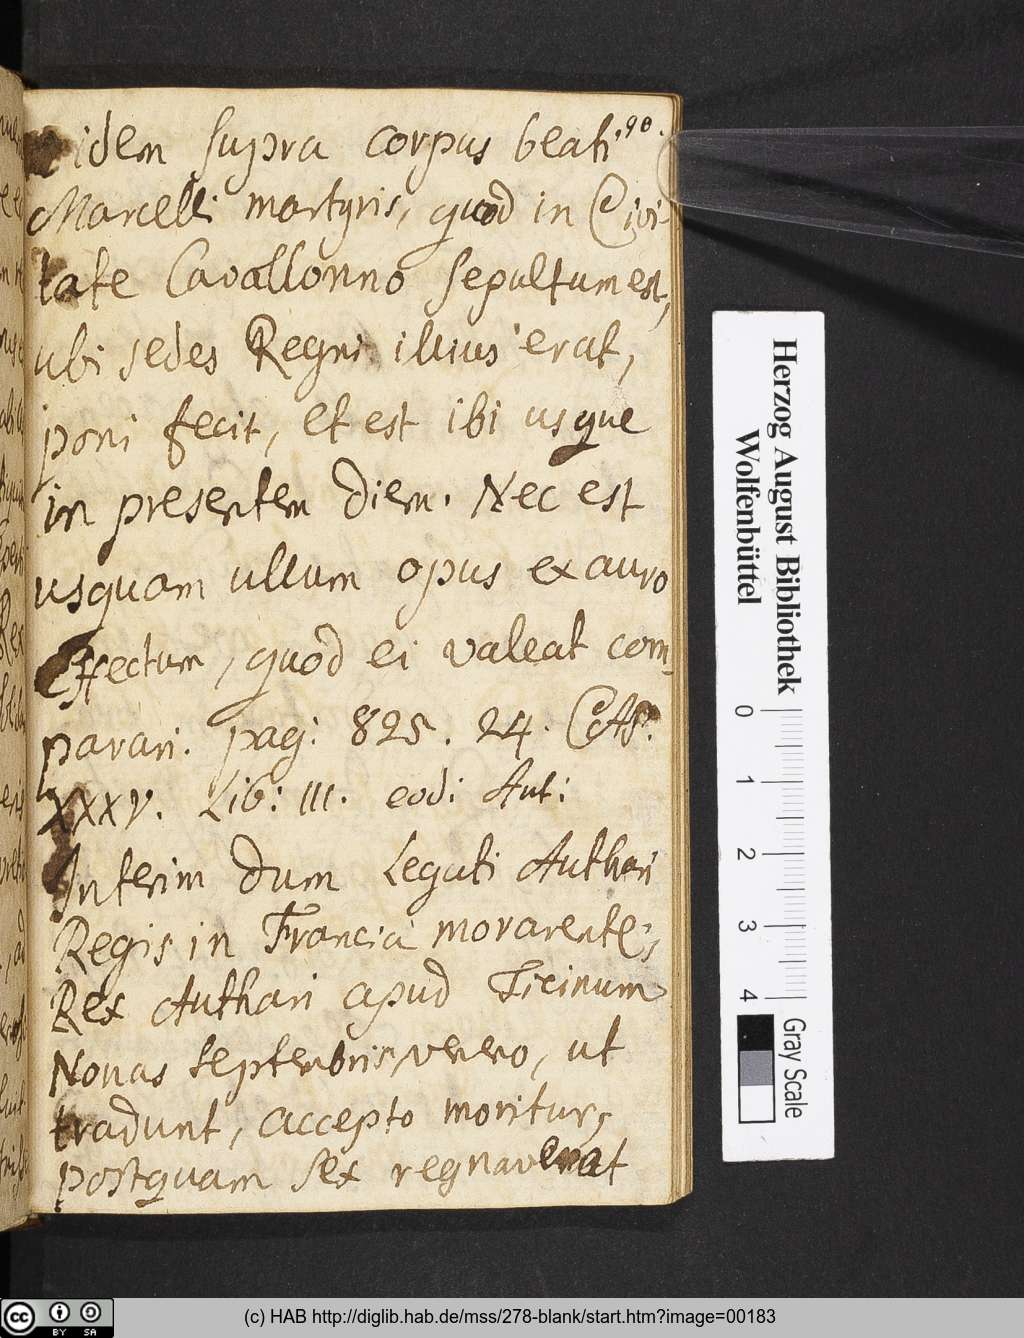 90.
idem supra corpus beati
Marcelli martyris, quod in Civi-
tate Cavallonno sepultum est,
ubi sedes Regni illius erat,
poni fecit, et est ibi usque
in presentem diem. Nec est
usquam ullum opus ex auro
effectum, quod ei valeat com-
parari. pag: 825. 24.
XXXV. Lib: III. eodi Aut:
Interim dum Legati Authari
Regis in Francia morarentes,
Rex Authari apud Ticinum
Nonas septembris veneno, ut
tradunt, accepto moritur,
postquam sex regnaverat
Herzog August Bibliothek
Wolfenbüttel
0 1 2 3 4
Gray Scale
cc BY SA
(c) HAB http://diglib.hab.de/mss/278-blank/start.htm?image=00183